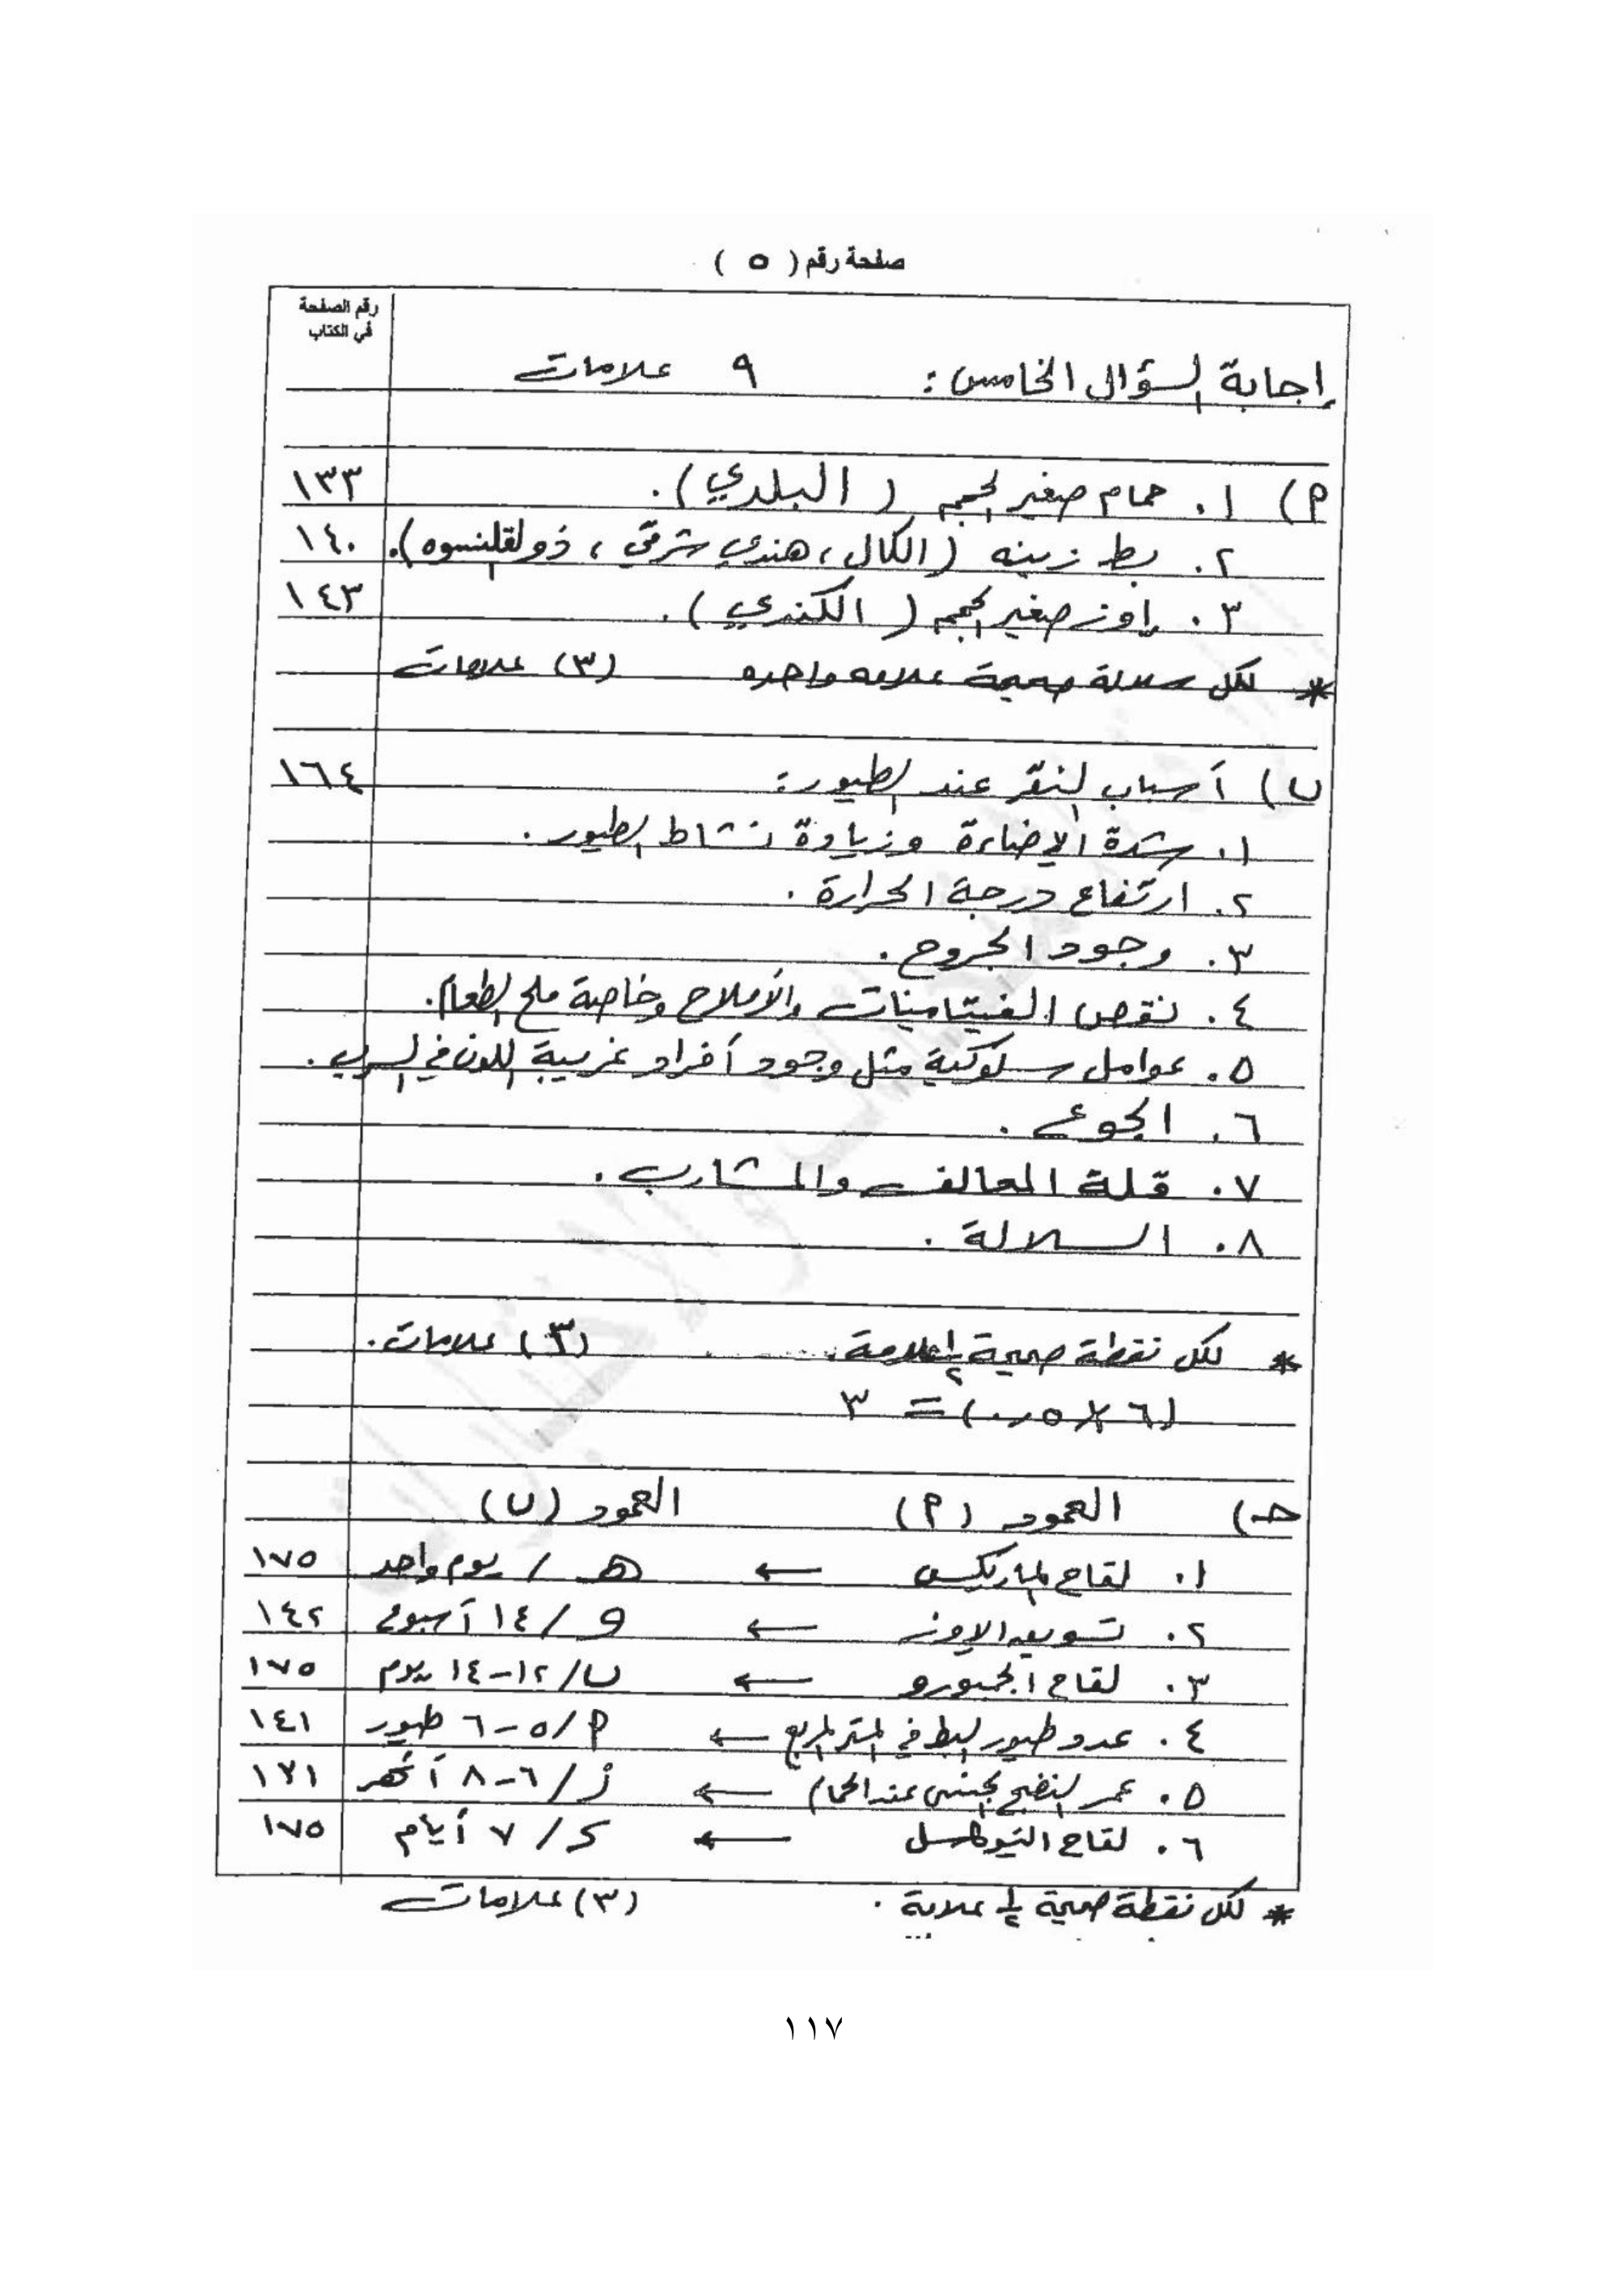 صفحة رقم ( ٥ )
رقم الصفحة
في الكتاب
إجابة السؤال الخامس : ٩ علامات
٩) ١. حمام صغير الحجم ( البلدي ) . ١٣٣
٢. بط زينه ( الكال ، هندي شرقي ، ذو القلنسوه ) . ١٤٠
٣. إوز صغير الحجم ( الكندي ) . ١٤٣
* لكل سلالة صحيحة علامه واحده (٣) علامات
ب) أسباب النقر عند الطيور : ١٦٤
١. شدة الإضاءة وزيادة نشاط الطيور .
٢. ارتفاع درجة الحرارة .
٣. وجود الجروح .
٤. نقص الفيتامينات والأملاح وخاصة ملح الطعام .
٥. عوامل سلوكية مثل وجود أفراد غريبة اللون في السرب .
٦. الجوع .
٧. قلة المعالف والمشارب .
٨. السلالة .
* لكل نقطة صحيحة ½ علامة . (٣) علامات .
(٦ × ٠,٥) = ٣
حـ) العمود (٩) العمود (ب)
١. لقاح الماريكس ← هـ / يوم واحد ١٧٥
٢. تسويق الاوز ← و / ١٤ أسبوع ١٤٢
٣. لقاح الجمبورو ← ب / ١٢-١٤ يوم ١٧٥
٤. عدد طيور البط في المتر المربع ← ٩ / ٥-٦ طيور ١٤١
٥. عمر النضج الجنسي عند الحمام ← ز / ٦-٨ أشهر ١٣١
٦. لقاح النيوكاسل ← د / ٧ أيام ١٧٥
* لكل نقطة صحيحة ½ علامة . (٣) علامات
١١٧